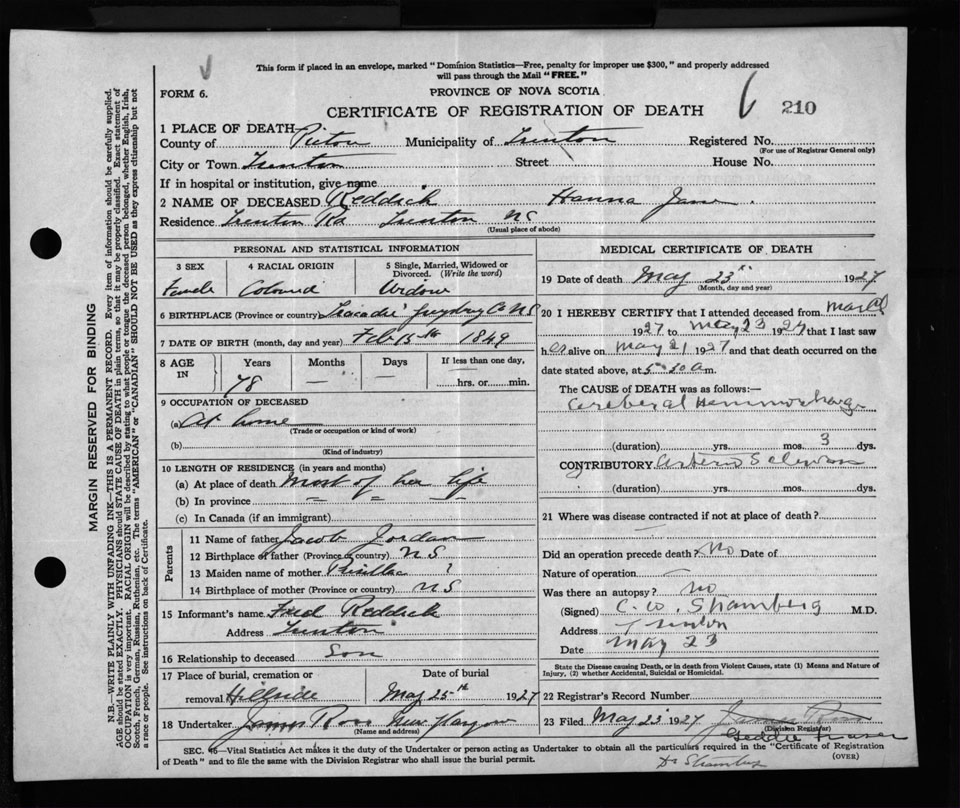 This form if placed in an envelope, marked "Dominion Statistics—Free, penalty for improper use $300," and properly addressed
will pass through the Mail "FREE."
FORM 6.
PROVINCE OF NOVA SCOTIA
CERTIFICATE OF REGISTRATION OF DEATH
210
1 PLACE OF DEATH
County of Pictou Municipality of Trenton Registered No.
(For use of Registrar General only)
City or Town Trenton Street House No.
If in hospital or institution, give name
2 NAME OF DECEASED Reddick Hanna Jane
Residence Trenton Rd Trenton NS
(Usual place of abode)
PERSONAL AND STATISTICAL INFORMATION
3 SEX 4 RACIAL ORIGIN 5 Single, Married, Widowed or
Divorced. (Write the word)
Female Colored Widow
6 BIRTHPLACE (Province or country) Tracadie Co NS
7 DATE OF BIRTH (month, day and year) Feb 15th 1849
8 AGE IN Years Months Days If less than one day,
78 — — hrs. or min.
9 OCCUPATION OF DECEASED
(a) At home
(Trade or occupation or kind of work)
(b)
(Kind of industry)
10 LENGTH OF RESIDENCE (in years and months)
(a) At place of death Most of her life
(b) In province " " "
(c) In Canada (if an immigrant)
Parents
11 Name of father Jacob Jordan
12 Birthplace of father (Province or country) NS
13 Maiden name of mother ?
14 Birthplace of mother (Province or country) NS
15 Informant's name Fred Reddick
Address Trenton
16 Relationship to deceased Son
17 Place of burial, cremation or Date of burial
removal Hillside May 25th 1927
18 Undertaker James Ross New Glasgow
(Name and address)
MEDICAL CERTIFICATE OF DEATH
19 Date of death May 23rd 1927
(Month, day and year)
20 I HEREBY CERTIFY that I attended deceased from March
1927 to May 23 1927 that I last saw
her alive on May 21 1927 and that death occurred on the
date stated above, at 5.20 a m.
The CAUSE OF DEATH was as follows:—
Cerebral Hemmorhage
(duration) yrs. mos. 3 dys.
CONTRIBUTORY Arterio
(duration) yrs. mos. dys.
21 Where was disease contracted if not at place of death?
Did an operation precede death? No Date of
Nature of operation
Was there an autopsy? no
(Signed) C. W. Stramberg M.D.
Address Trenton
Date May 23
State the Disease causing Death, or in death from Violent Causes, state (1) Means and Nature of
Injury, (2) whether Accidental, Suicidal or Homicidal.
22 Registrar's Record Number
23 Filed May 23 1927 James Ross
(Division Registrar)
Geddie Fraser
(OVER)
SEC. 46—Vital Statistics Act makes it the duty of the Undertaker or person acting as Undertaker to obtain all the particulars required in the "Certificate of Registration
of Death" and to file the same with the Division Registrar who shall issue the burial permit.
Dr Stramberg
MARGIN RESERVED FOR BINDING
N.B.—WRITE PLAINLY WITH UNFADING INK—THIS IS A PERMANENT RECORD. Every item of information should be carefully supplied.
AGE should be stated EXACTLY. PHYSICIANS should STATE CAUSE OF DEATH in plain terms, so that it may be properly classified. Exact statement of
OCCUPATION is very important. RACIAL ORIGIN will be described by stating to what people or tongue the deceased person belonged, whether English, Irish,
Scotch, French, German, Russian, Ruthenian, etc. The terms "AMERICAN" or "CANADIAN" SHOULD NOT BE USED as they express citizenship but not
a race or people. See instructions on back of Certificate.